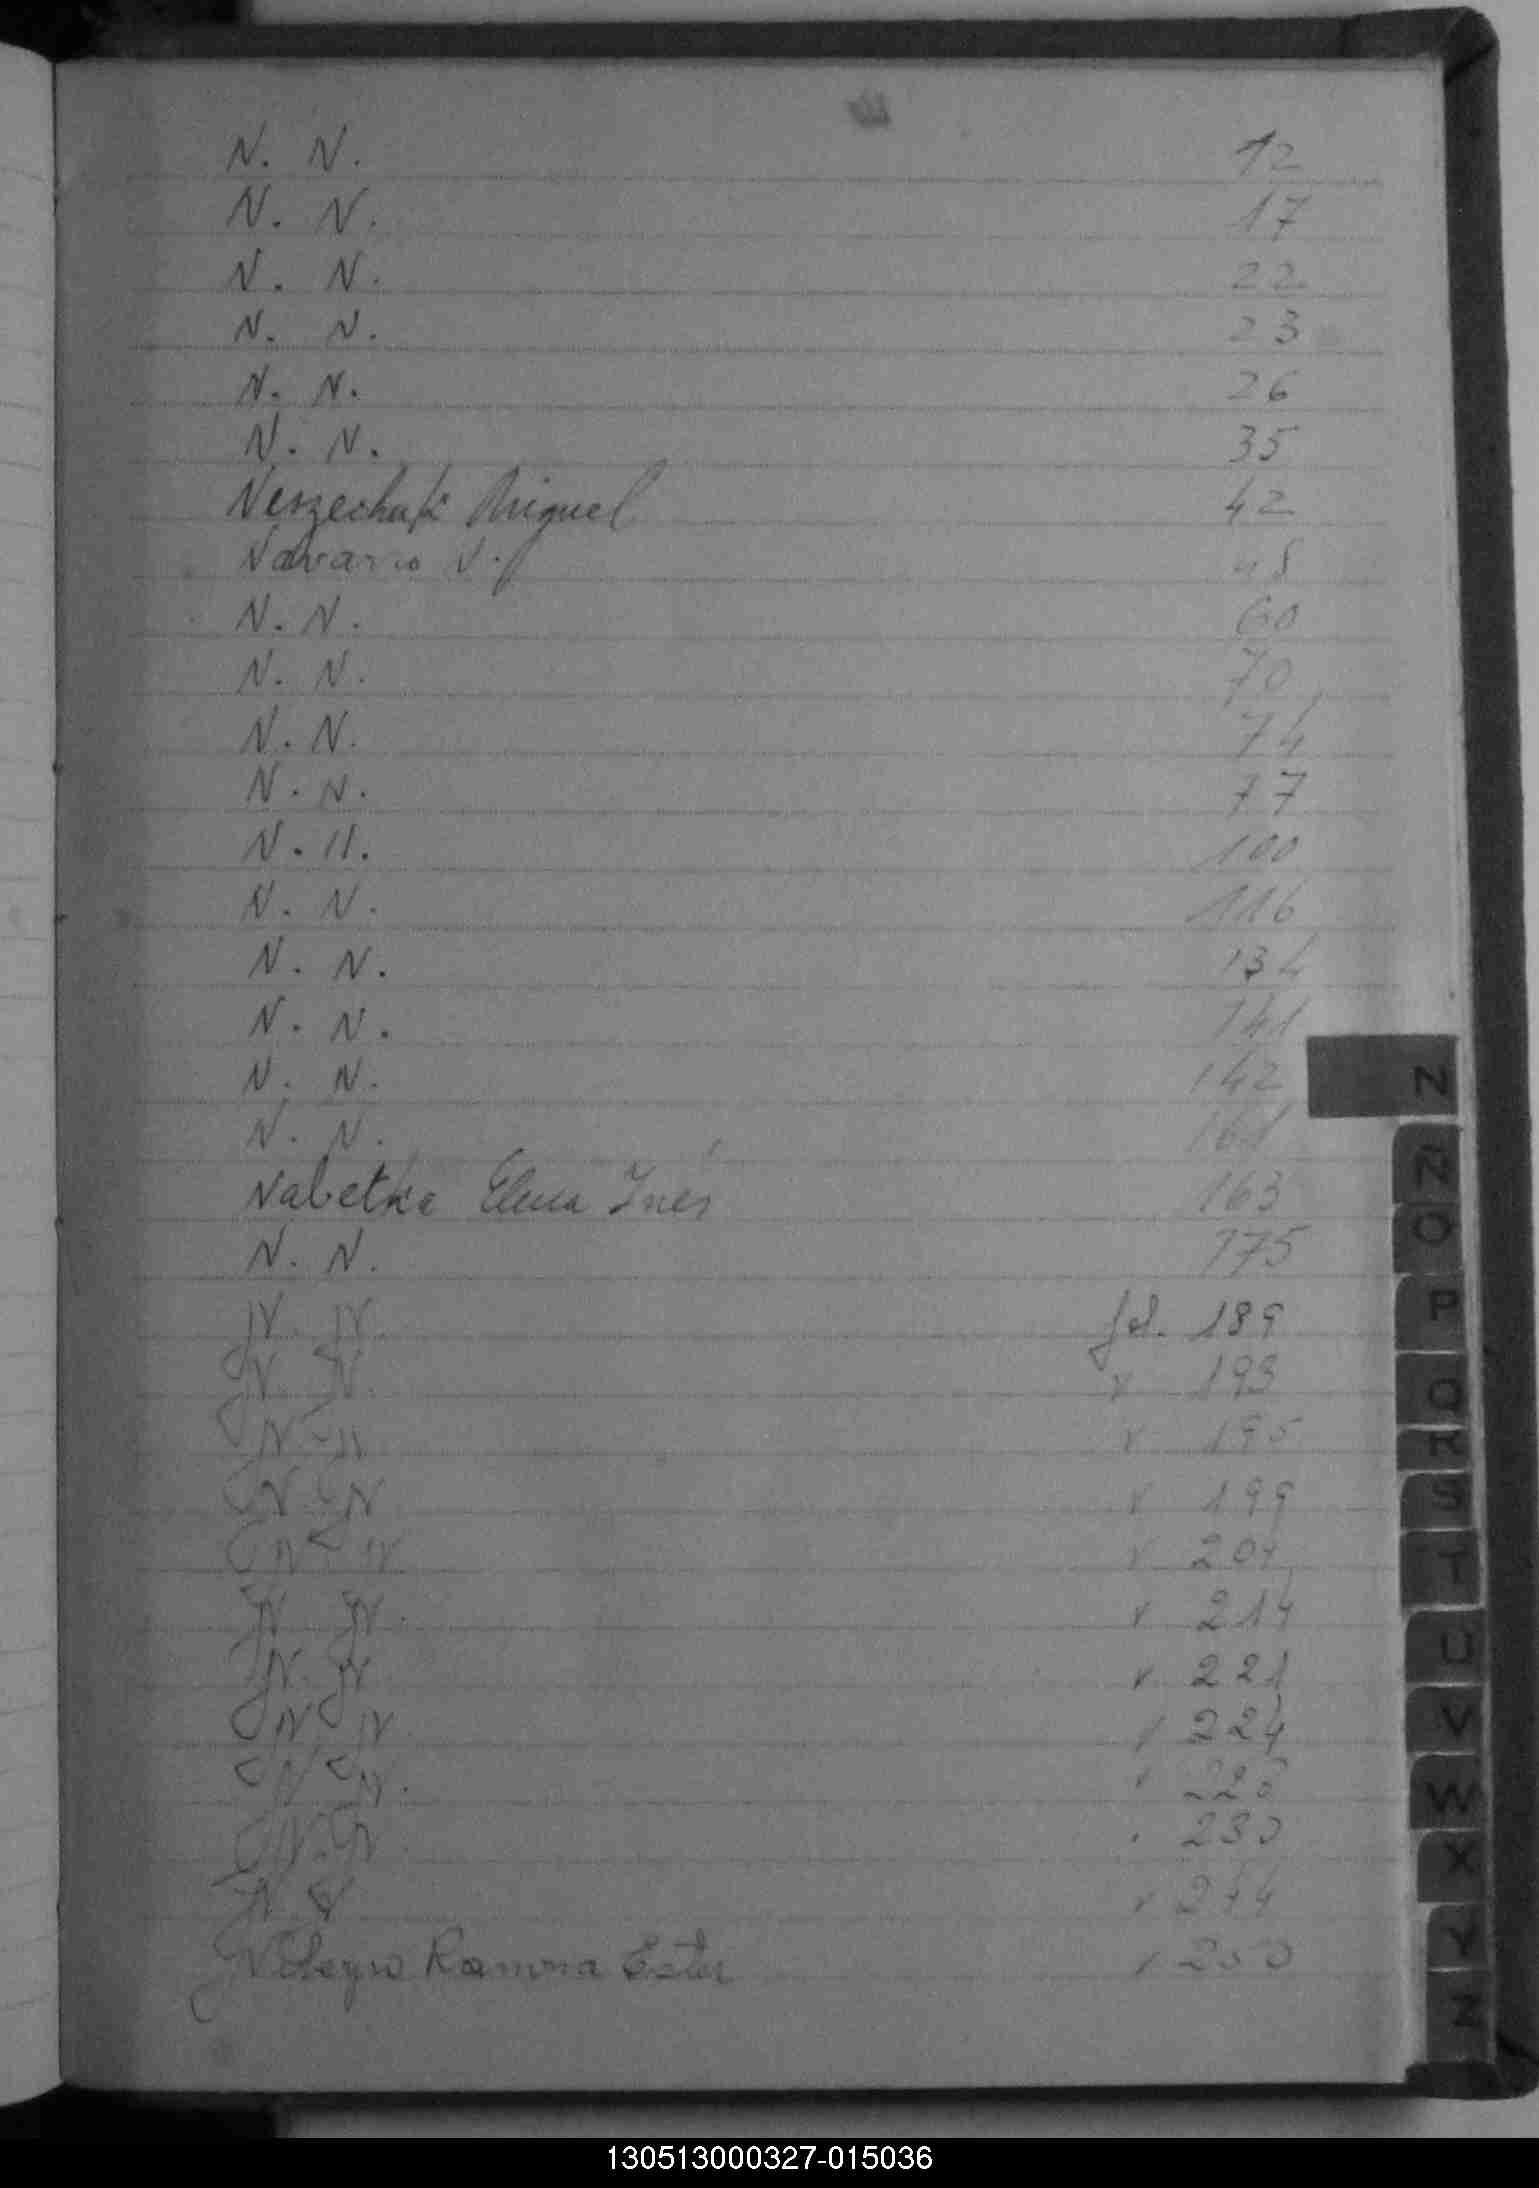 N. N. 12
N. N. 17
N. N. 22
N. N. 23
N. N. 26
N. N. 35
Miguel 42
Navarro N. 48
N. N. 60
N. N. 70
N. N. 74
N. N. 77
N. N. 100
N. N. 116
N. N. 134
N. N. 141
N. N. 142
N. N. 161
Nabetka Elena Inés 163
N. N. 175
N. N. fol. 189
N. N. " 193
N. N " 195
N. N " 199
N N " 204
N. N. " 214
N. N " 221
N N " 224
N N. "
N. N. " 230
N. N " 244
Ramona Ester " 250
N
Ñ
O
P
Q
R
S
T
U
V
W
X
Y
Z
130513000327-015036